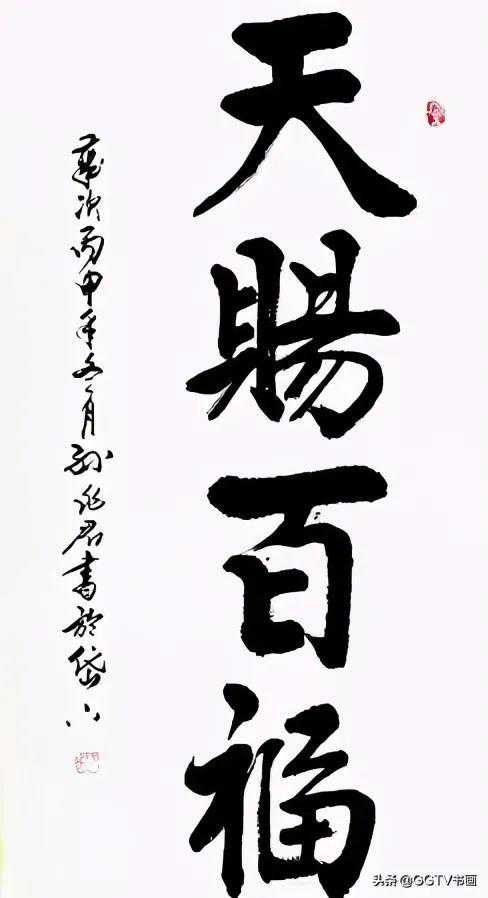 天賜百福
歲次丙申年冬月孫兆君書於岱下
头条 @GGTV书画